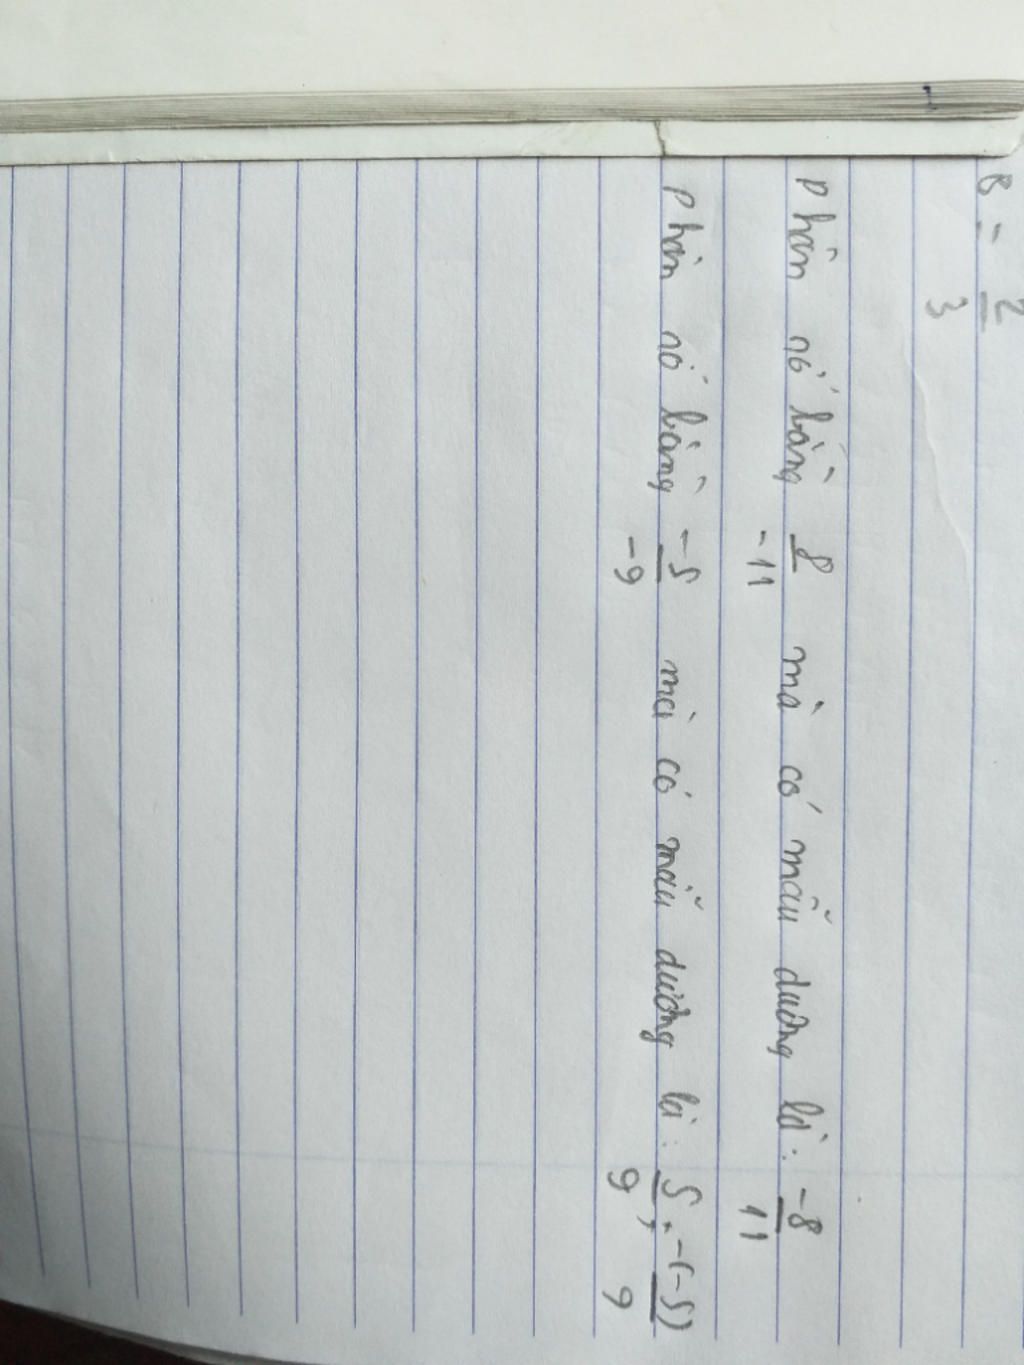 B = 2/3
Phân số bằng 8/-11 mà có mẫu dương là: -8/11
Phân số bằng -5/-9 mà có mẫu dương là: 5/9; -(-5)/9